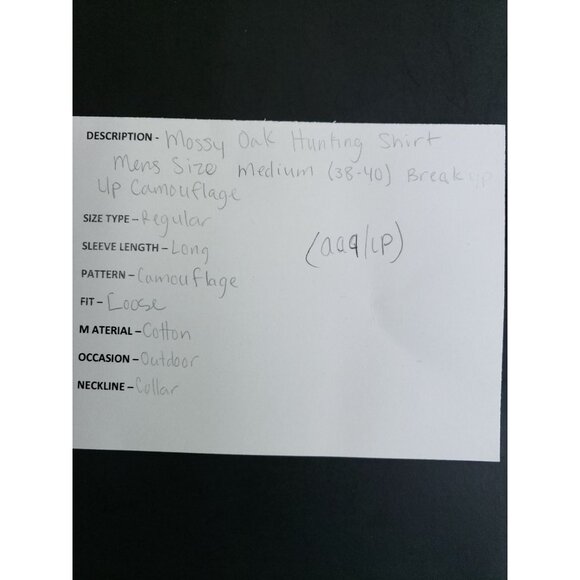 DESCRIPTION - Mossy Oak Hunting Shirt
Mens Size Medium (38-40) Breakup
Up Camouflage
SIZE TYPE - Regular
SLEEVE LENGTH - Long
(aaq/LP)
PATTERN - Camouflage
FIT - Loose
MATERIAL - Cotton
OCCASION - Outdoor
NECKLINE - Collar